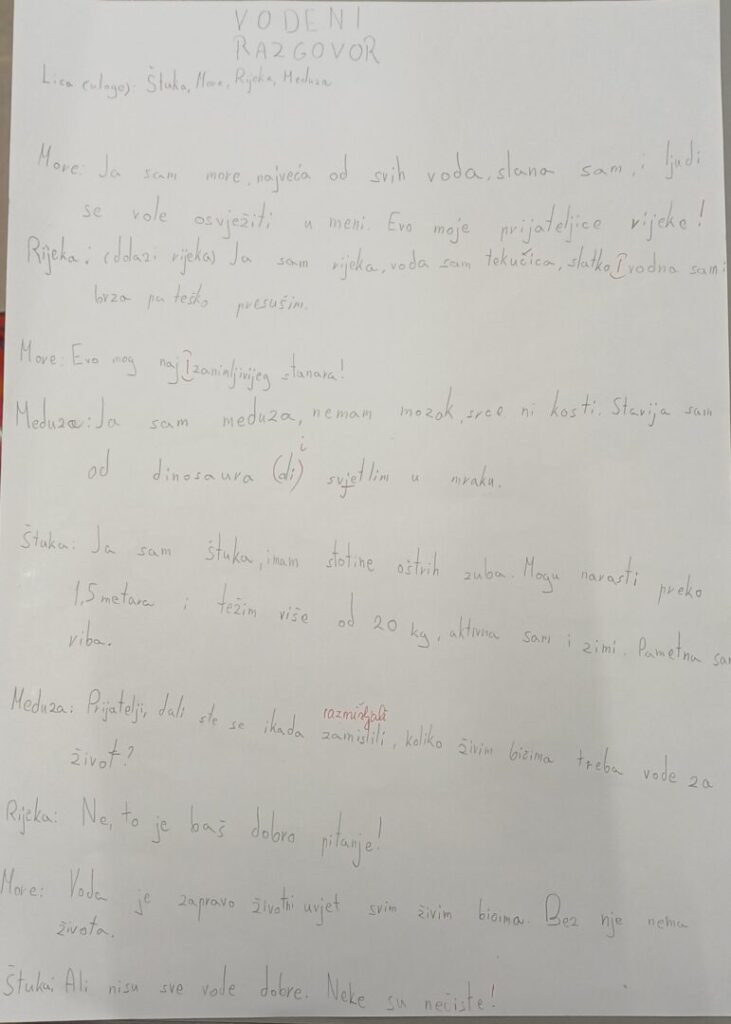 VODENI
RAZGOVOR
Lica (uloge): Štuka, More, Rijeka, Meduza
More: Ja sam more, najveća od svih voda, slana sam, i ljudi
se vole osvježiti u meni. Evo moje prijateljice rijeke!
Rijeka: (dolazi rijeka) Ja sam rijeka, voda sam tekućica, slatko I vodna sam i
brza pa teško presušim.
More: Evo mog naj I zanimljivijeg stanara!
Meduza: Ja sam meduza, nemam mozak, srce ni kosti. Starija sam
i
od dinosaura (ali) svjetlim u mraku.
Štuka: Ja sam štuka, imam stotine oštrih zuba. Mogu narasti preko
1,5 metara i težim više od 20 kg, aktivna sam i zimi. Pametna sam
riba.
razmišljali
Meduza: Prijatelji, dali ste se ikada zamislili, koliko živim bićima treba vode za
život?
Rijeka: Ne, to je baš dobro pitanje!
More: Voda je zapravo životni uvjet svim živim bićima. Bez nje nema
života.
Štuka: Ali nisu sve vode dobre. Neke su nečiste!